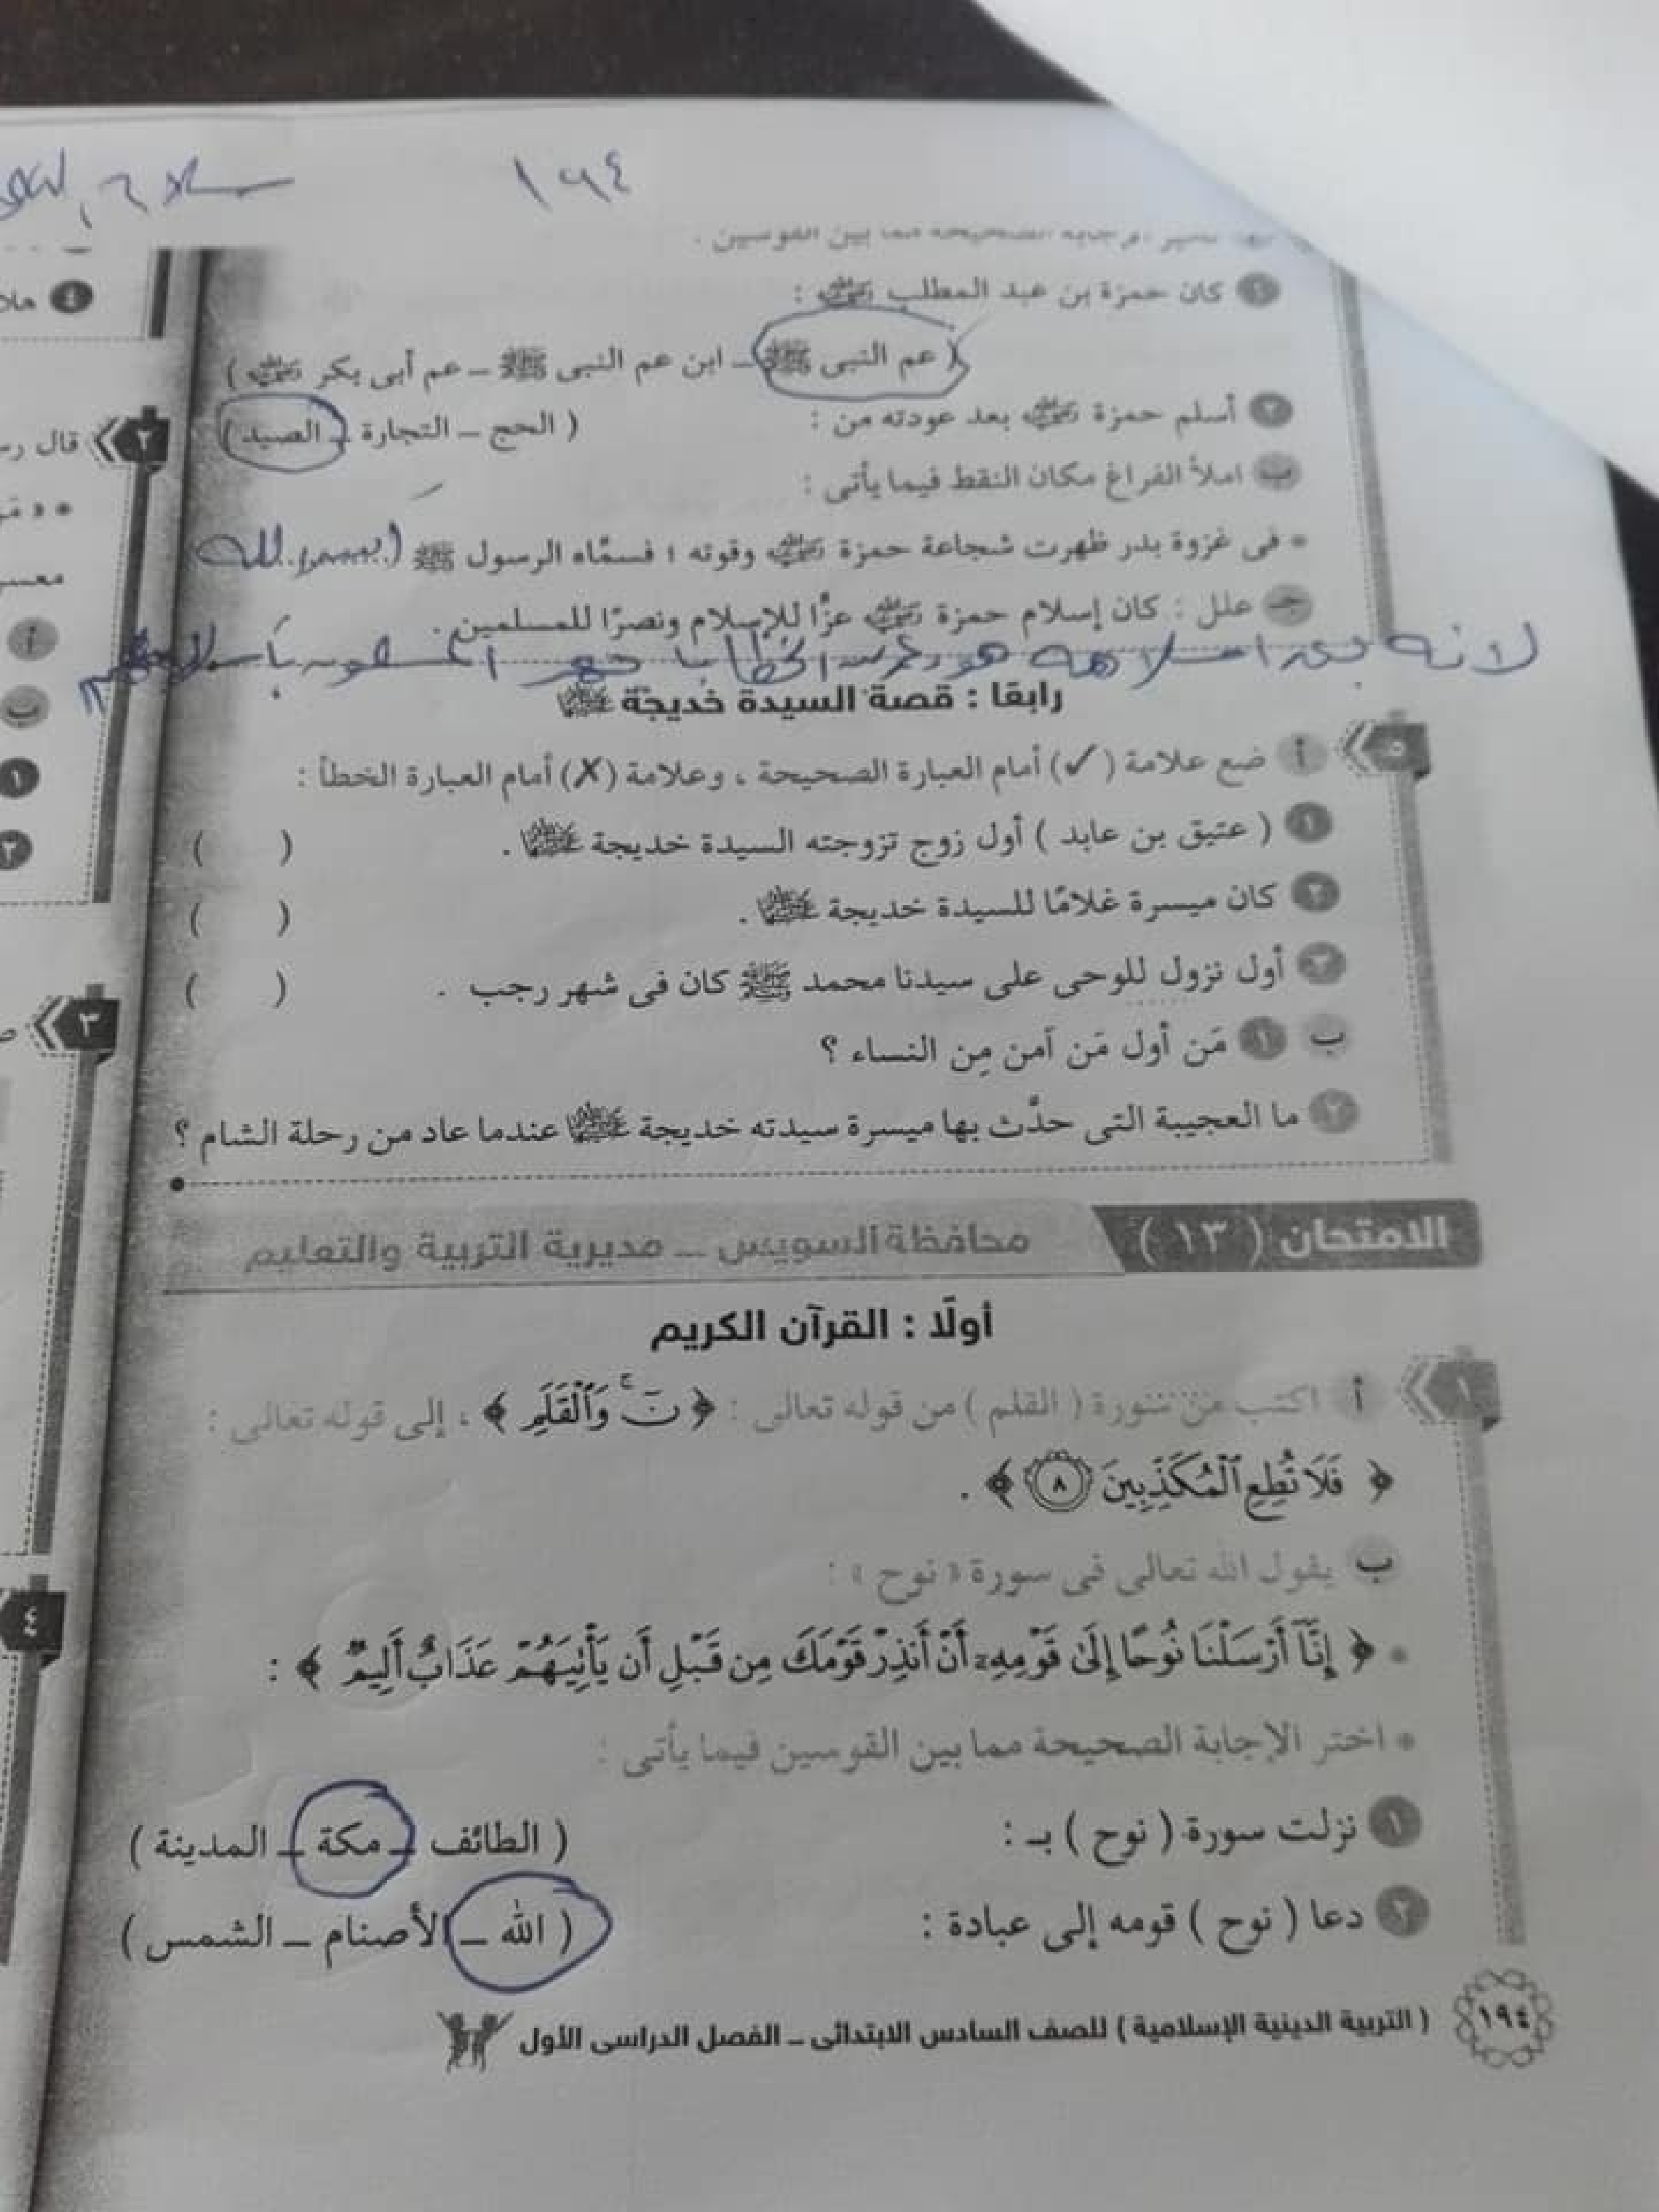 ١٩٤
بين القوسين .
١ كان حمزة بن عبد المطلب رضي الله عنه :
( عم النبى ﷺ – ابن عم النبى ﷺ – عم أبى بكر رضي الله عنه )
٢ أسلم حمزة رضي الله عنه بعد عودته من : ( الحج – التجارة – الصيد )
ب املأ الفراغ مكان النقط فيما يأتى :
• فى غزوة بدر ظهرت شجاعة حمزة رضي الله عنه وقوته ؛ فسمَّاه الرسول ﷺ (
جـ علل : كان إسلام حمزة رضي الله عنه عزًّا للإسلام ونصرًا للمسلمين .
لانه بعد اسلامه هو وعمر الخطاب جهر المسلمون بأسلامهم
رابعًا : قصة السيدة خديجة رضي الله عنها
٥ أ ضع علامة (✓) أمام العبارة الصحيحة ، وعلامة (✗) أمام العبارة الخطأ :
١ ( عتيق بن عابد ) أول زوج تزوجته السيدة خديجة رضي الله عنها . ( )
٢ كان ميسرة غلامًا للسيدة خديجة رضي الله عنها . ( )
٣ أول نزول للوحى على سيدنا محمد ﷺ كان فى شهر رجب . ( )
ب ١ مَن أول مَن آمن مِن النساء ؟
٢ ما العجيبة التى حدَّث بها ميسرة سيدته خديجة رضي الله عنها عندما عاد من رحلة الشام ؟
الامتحان ( ١٣ ) محافظة السويس – مديرية التربية والتعليم
أولًا : القرآن الكريم
١ أ اكتب من سورة ( القلم ) من قوله تعالى : ﴿ نٓ ۚ وَٱلْقَلَمِ ﴾ ، إلى قوله تعالى :
﴿ فَلَا تُطِعِ ٱلْمُكَذِّبِينَ ٨ ﴾ .
ب يقول الله تعالى فى سورة « نوح » :
• ﴿ إِنَّآ أَرْسَلْنَا نُوحًا إِلَىٰ قَوْمِهِۦٓ أَنْ أَنذِرْ قَوْمَكَ مِن قَبْلِ أَن يَأْتِيَهُمْ عَذَابٌ أَلِيمٌ ﴾ :
• اختر الإجابة الصحيحة مما بين القوسين فيما يأتى :
١ نزلت سورة ( نوح ) بـ : ( الطائف – مكة – المدينة )
٢ دعا ( نوح ) قومه إلى عبادة : ( الله – الأصنام – الشمس )
١٩٤ ( التربية الدينية الإسلامية ) للصف السادس الابتدائى – الفصل الدراسى الأول
٢ قال
أ
ب
١
٢
٣
٤